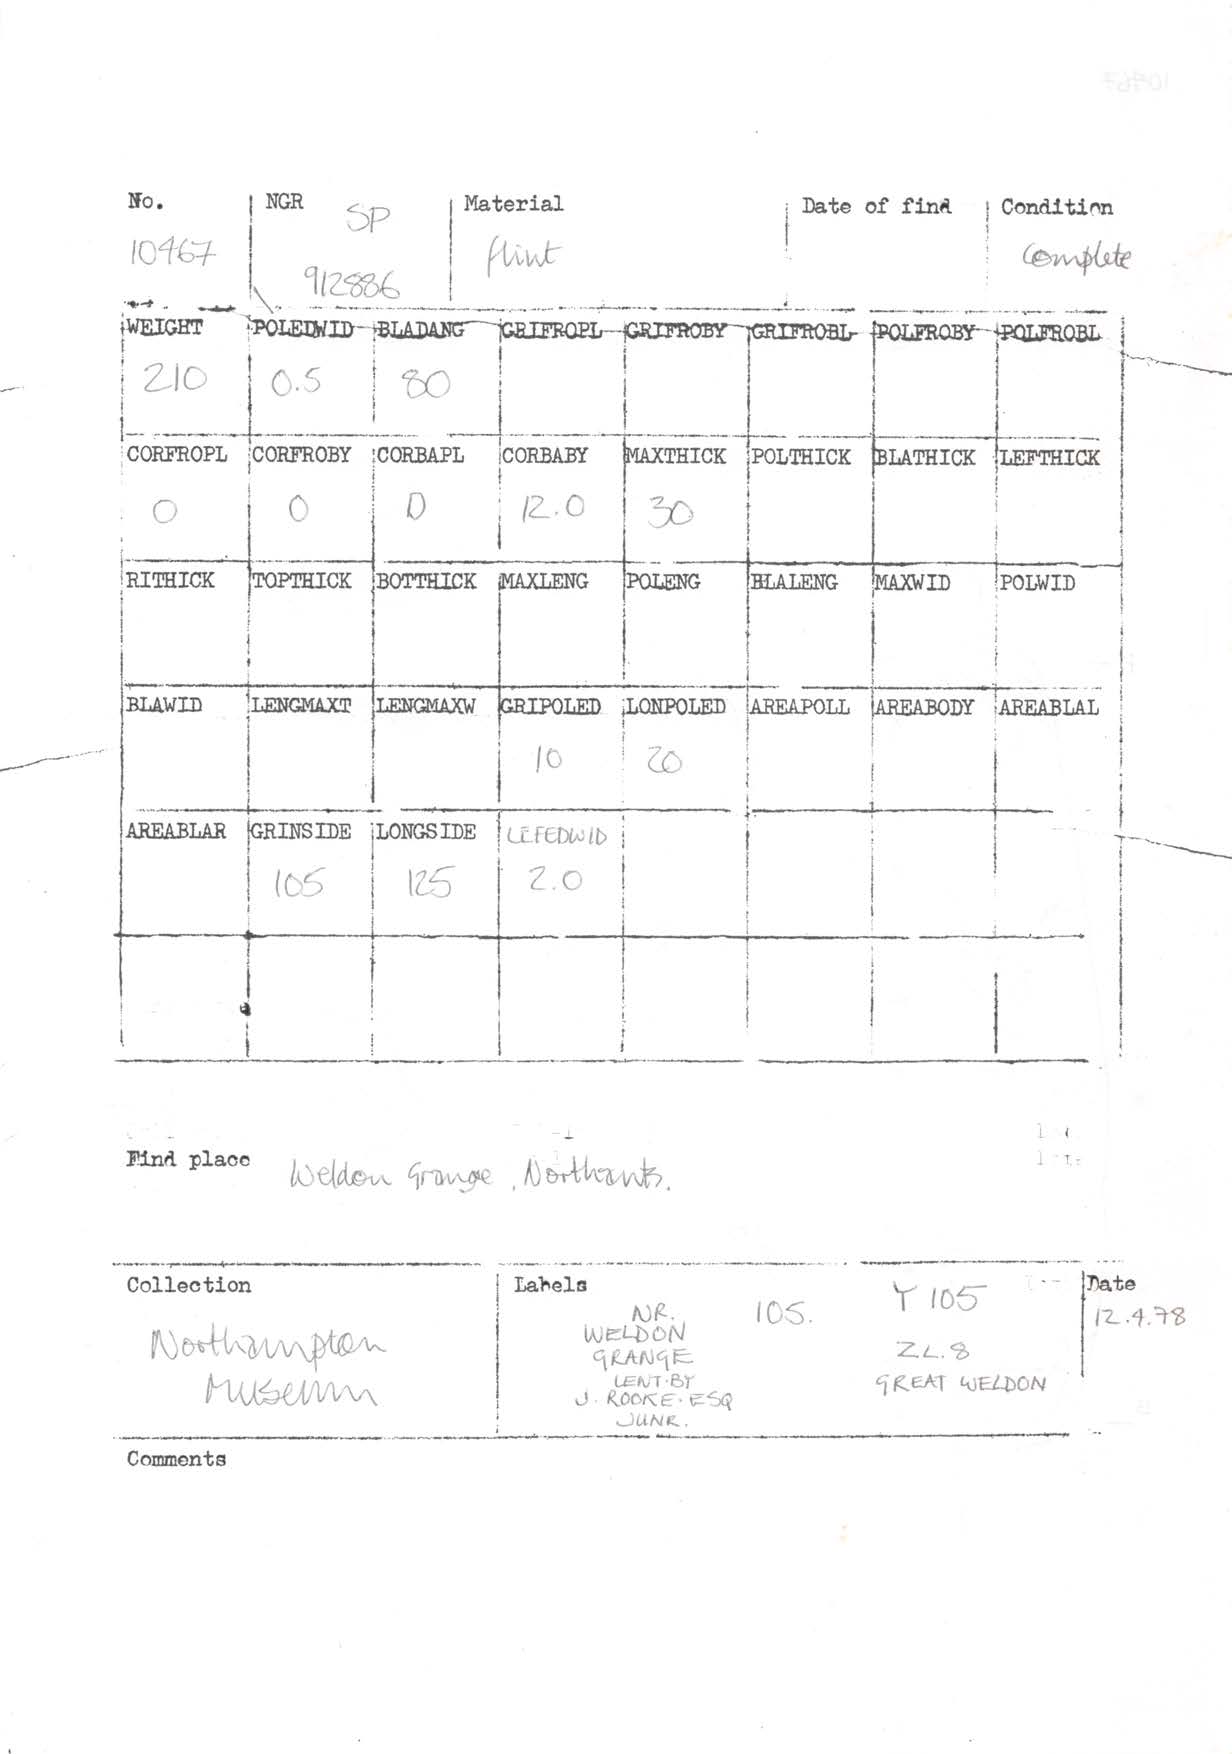 No. NGR Material Date of find Condition
10467 SP 912886 flint complete
WEIGHT POLEDWID BLADANG GRIFROPL GRIFROBY GRIFROBL POLFROBY POLFROBL
210 0.5 80
CORFROPL CORFROBY CORBAPL CORBABY MAXTHICK POLTHICK BLATHICK LEFTHICK
0 0 0 12.0 30
RITHICK TOPTHICK BOTTHICK MAXLENG POLENG BLALENG MAXWID POLWID
BLAWID LENGMAXT LENGMAXW GRIPOLED LONPOLED AREAPOLL AREABODY AREABLAL
10 20
AREABLAR GRINSIDE LONGSIDE LEFEDWID
105 125 2.0
Find place Weldon Grange, Northants.
Collection Labels Date
Northampton
Museum
NR.
WELDON
GRANGE
LENT·BY
J. ROOKE·ESQ
JUNR.
105.
Y 105
ZL.8
GREAT WELDON
12.4.78
Comments